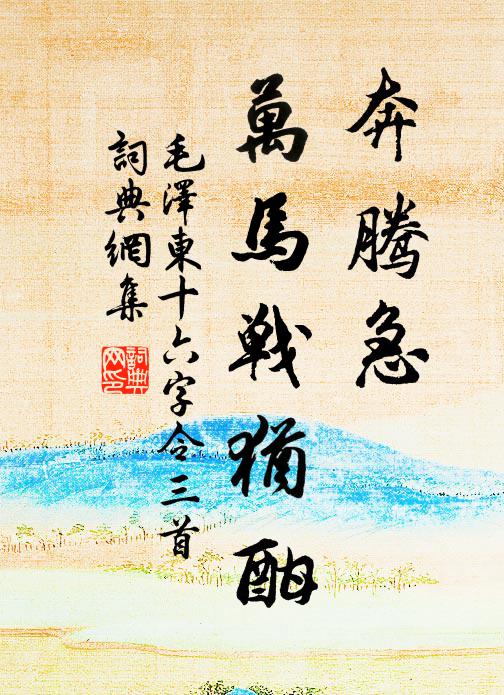 奔騰急
萬馬戰猶酣
毛澤東十六字令三首
詞典網集
詞典
网印